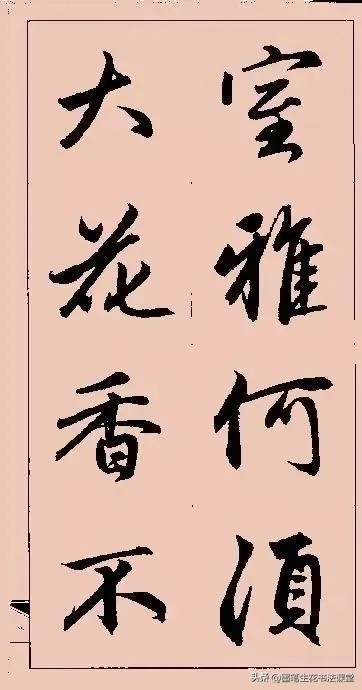 室雅何須
大花香不
頭条 @圆笔生花书法课堂